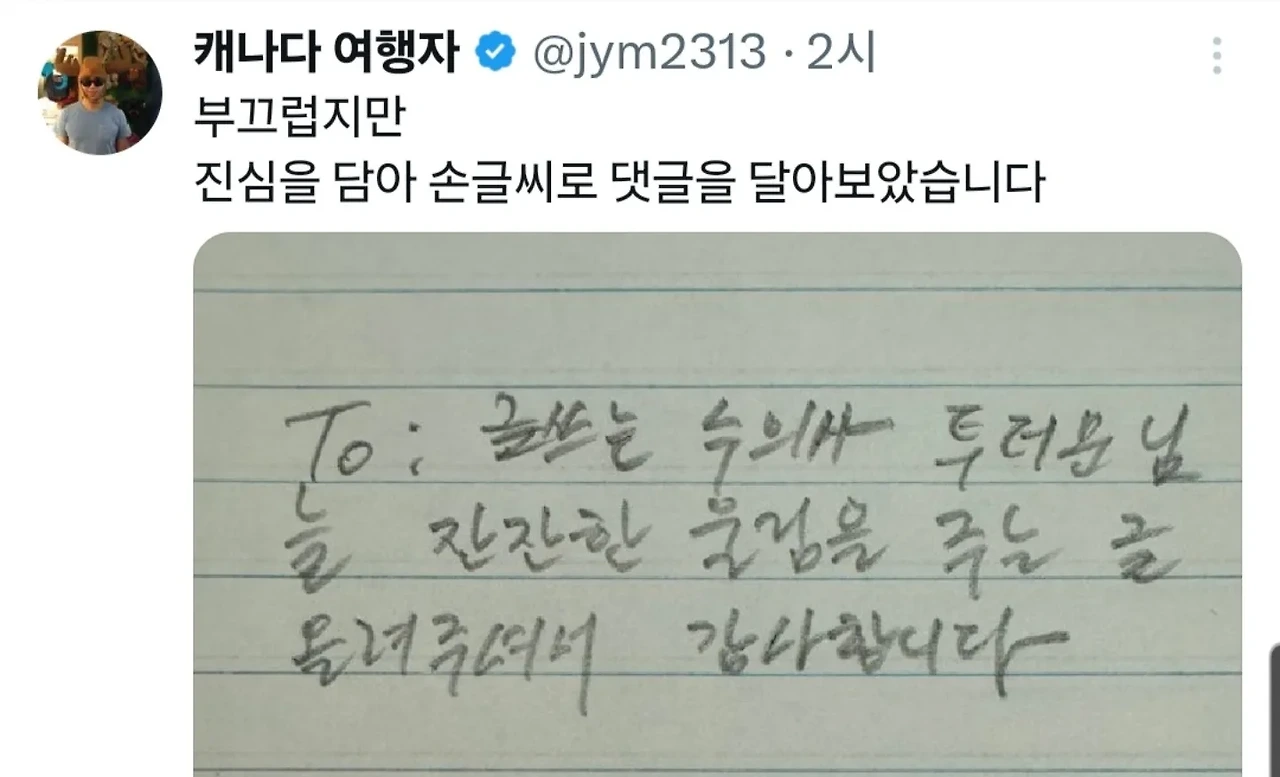 캐나다 여행자 @jym2313 · 2시
부끄럽지만
진심을 담아 손글씨로 댓글을 달아보았습니다
To; 글쓰는 수의사 투더문 님
늘 잔잔한 울림을 주는 글
올려주셔서 감사합니다